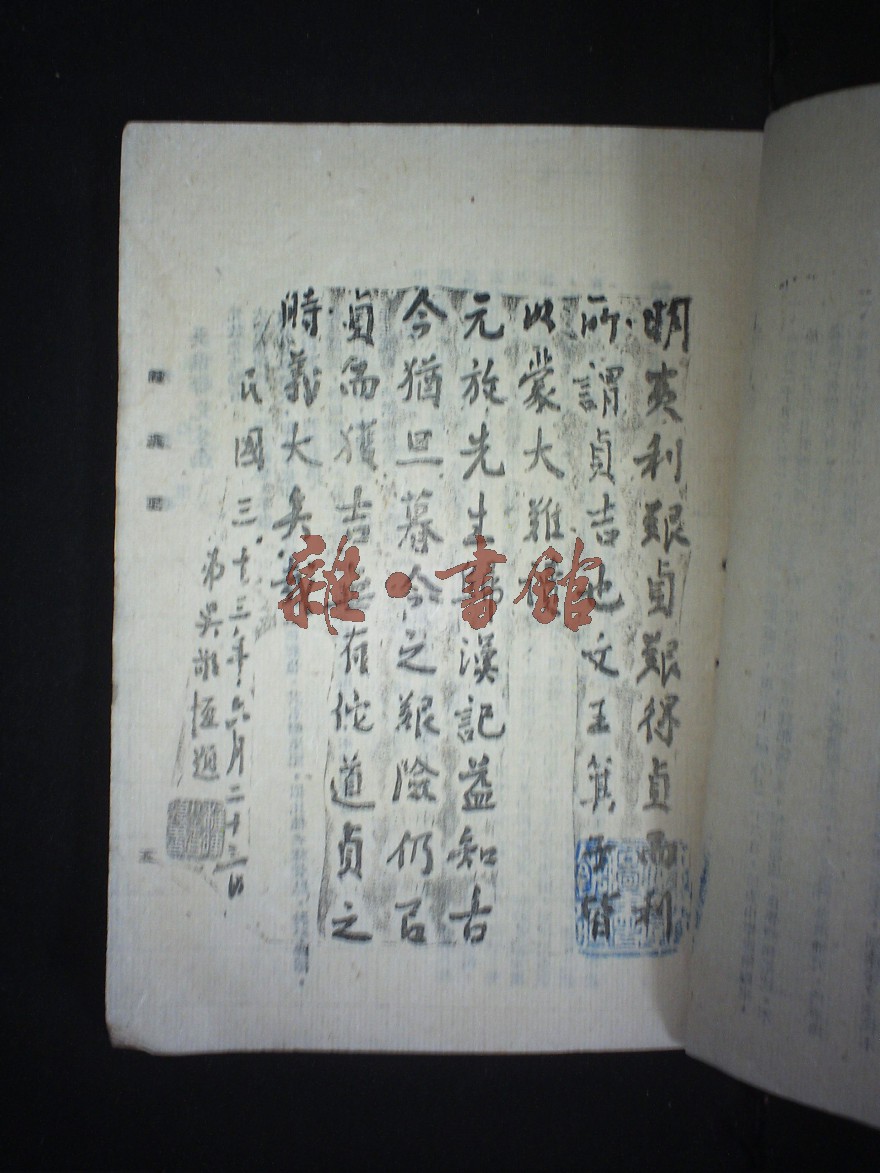 明夷利艱貞艱得貞而利
所謂貞吉也文王箕子皆
以蒙大難
元放先生 漢記益知古
今猶旦暮今之艱險仍以
貞而獲吉無有佗道貞之
時義大矣
民國三十三年六月二十三日
弟吳敬恆題
雜·書館